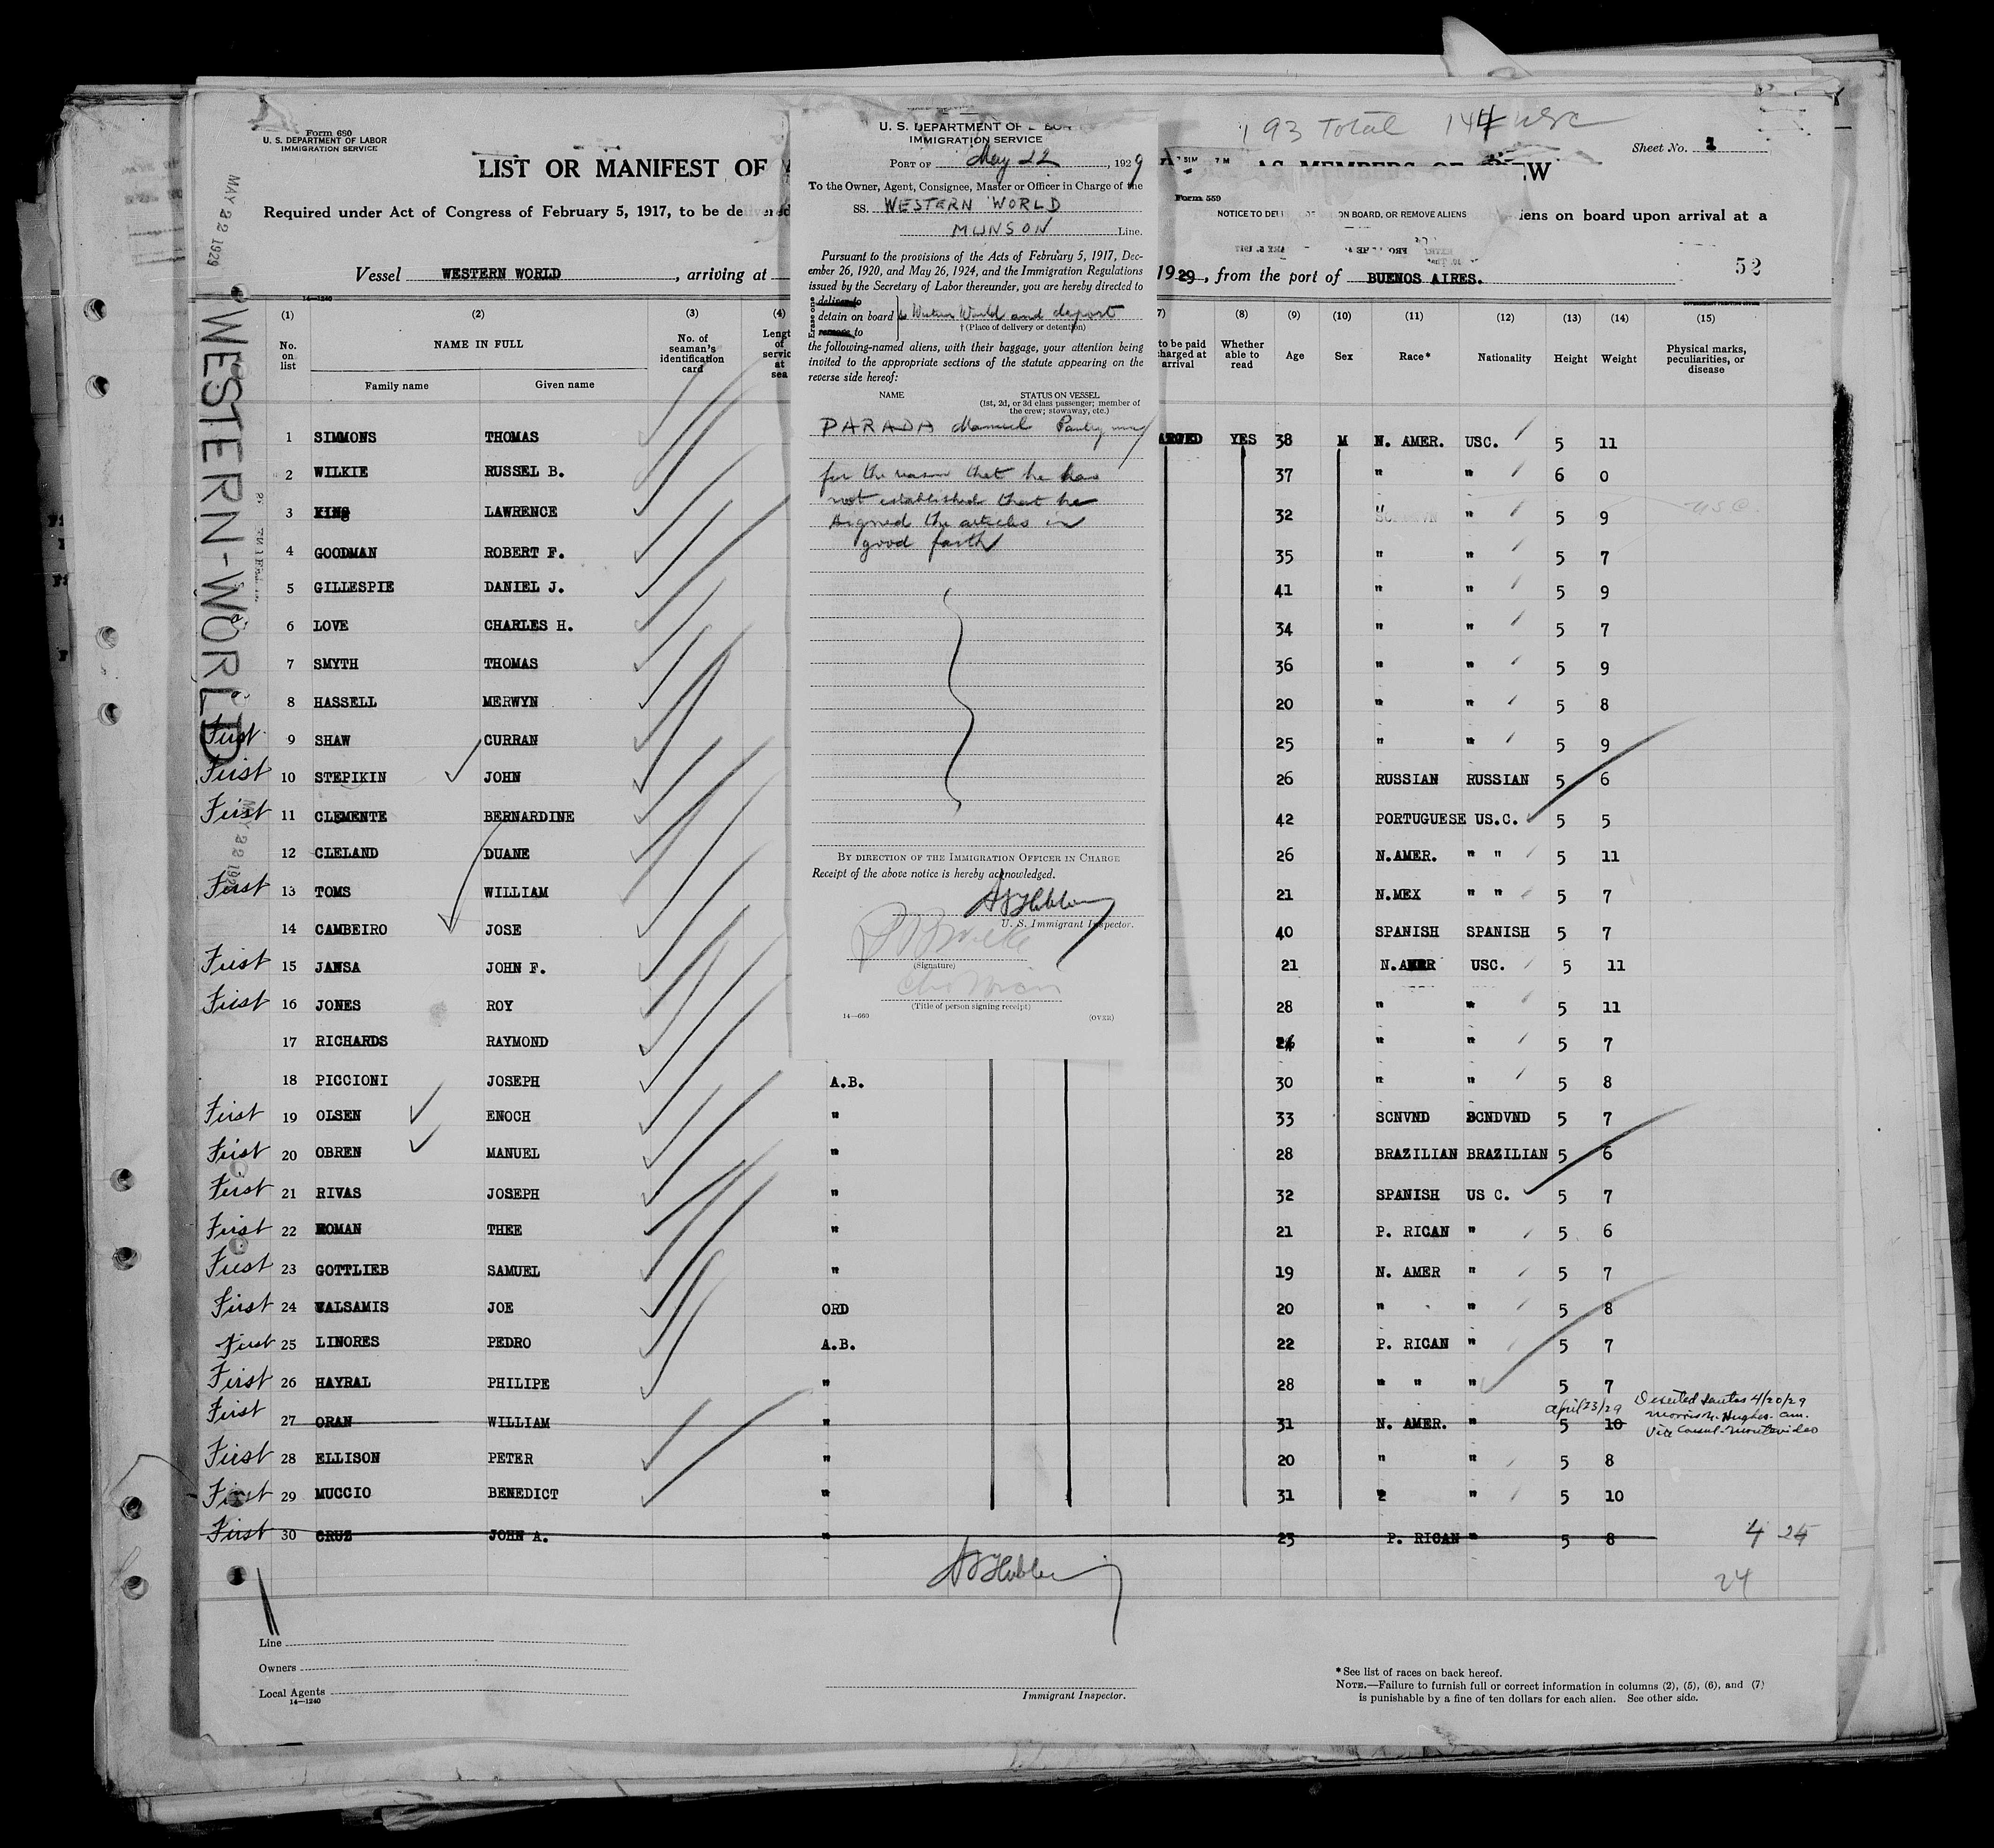 193 Total 144 USC
Form 680
U. S. DEPARTMENT OF LABOR
IMMIGRATION SERVICE
Sheet No. 1
LIST OR MANIFEST OF
AS MEMBERS OF CREW
Required under Act of Congress of February 5, 1917, to be delivered
aliens on board upon arrival at a
Vessel WESTERN WORLD, arriving at
1929, from the port of BUENOS AIRES.
52
MAY 22 1929
WESTERN-WORLD
Form 559
NOTICE TO DELIVER, DETAIN ON BOARD, OR REMOVE ALIENS
U. S. DEPARTMENT OF LABOR
IMMIGRATION SERVICE
PORT OF May 22, 1929
To the Owner, Agent, Consignee, Master or Officer in Charge of the
SS. WESTERN WORLD
MUNSON Line.
Pursuant to the provisions of the Acts of February 5, 1917, Dec-
ember 26, 1920, and May 26, 1924, and the Immigration Regulations
issued by the Secretary of Labor thereunder, you are hereby directed to
Erase one
deliver to
detain on board
remove to
Western World and deport
† (Place of delivery or detention)
the following-named aliens, with their baggage, your attention being
invited to the appropriate sections of the statute appearing on the
reverse side hereof:
NAME STATUS ON VESSEL
(1st, 2d, or 3d class passenger; member of
the crew; stowaway, etc.)
PARADA Manuel Pantry man
for the reason that he has
not established that he
signed the articles in
good faith
BY DIRECTION OF THE IMMIGRATION OFFICER IN CHARGE
Receipt of the above notice is hereby acknowledged.
U. S. Immigrant Inspector.
(Signature)
(Title of person signing receipt)
14—660 (OVER)
14—1240
(1) (2) (3) (4) (7) (8) (9) (10) (11) (12) (13) (14) (15)
No. on list
NAME IN FULL
Family name Given name
No. of seaman's identification card
Length of service at sea
to be paid
charged at
arrival
Whether able to read
Age Sex Race* Nationality Height Weight
Physical marks, peculiarities, or disease
1 SIMMONS THOMAS YES 38 M N. AMER. USC. 5 11
2 WILKIE RUSSEL B. 37 " " 6 0
3 KING LAWRENCE 32 " " 5 9 USC.
4 GOODMAN ROBERT F. 35 " " 5 7
5 GILLESPIE DANIEL J. 41 " " 5 9
6 LOVE CHARLES H. 34 " " 5 7
7 SMYTH THOMAS 36 " " 5 9
8 HASSELL MERWYN 20 " " 5 8
First 9 SHAW CURRAN 25 " " 5 9
First 10 STEPIKIN JOHN 26 RUSSIAN RUSSIAN 5 6
First 11 CLEMENTE BERNARDINE 42 PORTUGUESE US.C. 5 5
12 CLELAND DUANE 26 N.AMER. " " 5 11
First 13 TOMS WILLIAM 21 N.MEX " " 5 7
14 CAMBEIRO JOSE 40 SPANISH SPANISH 5 7
First 15 JANSA JOHN F. 21 N.AMER USC. 5 11
First 16 JONES ROY 28 " " 5 11
17 RICHARDS RAYMOND " " 5 7
18 PICCIONI JOSEPH A.B. 30 " " 5 8
First 19 OLSEN ENOCH " 33 SCNVND SCNDVND 5 7
First 20 OBREN MANUEL " 28 BRAZILIAN BRAZILIAN 5 6
First 21 RIVAS JOSEPH " 32 SPANISH US C. 5 7
First 22 ROMAN THEE " 21 P. RICAN " 5 6
First 23 GOTTLIEB SAMUEL " 19 N. AMER " 5 7
First 24 VALSAMIS JOE ORD 20 " " 5 8
First 25 LINORES PEDRO A.B. 22 P. RICAN " 5 7
First 26 HAYRAL PHILIPE " 28 " " " 5 7
First 27 ORAN WILLIAM " 31 N. AMER. " 5 10
April 23/29
Deserted Santos 4/20/29
Morris N. Hughes. Am.
Vice Consul-Montevideo
First 28 ELLISON PETER " 20 " " 5 8
First 29 MUCCIO BENEDICT " 31 " " 5 10
First 30 CRUZ JOHN A. " 23 P. RICAN " 5 8
4 24
24
Line
Owners
Local Agents
14—1240
Immigrant Inspector.
* See list of races on back hereof.
NOTE.—Failure to furnish full or correct information in columns (2), (5), (6), and (7)
is punishable by a fine of ten dollars for each alien. See other side.